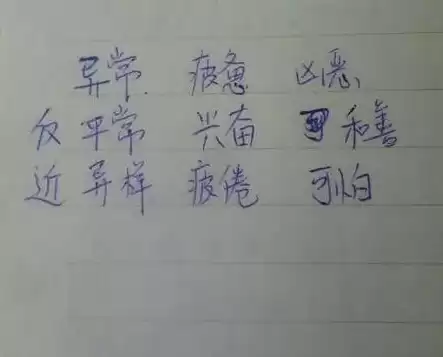 异常 疲惫 凶恶
反 平常 兴奋 和善
近 异样 疲倦 可怕